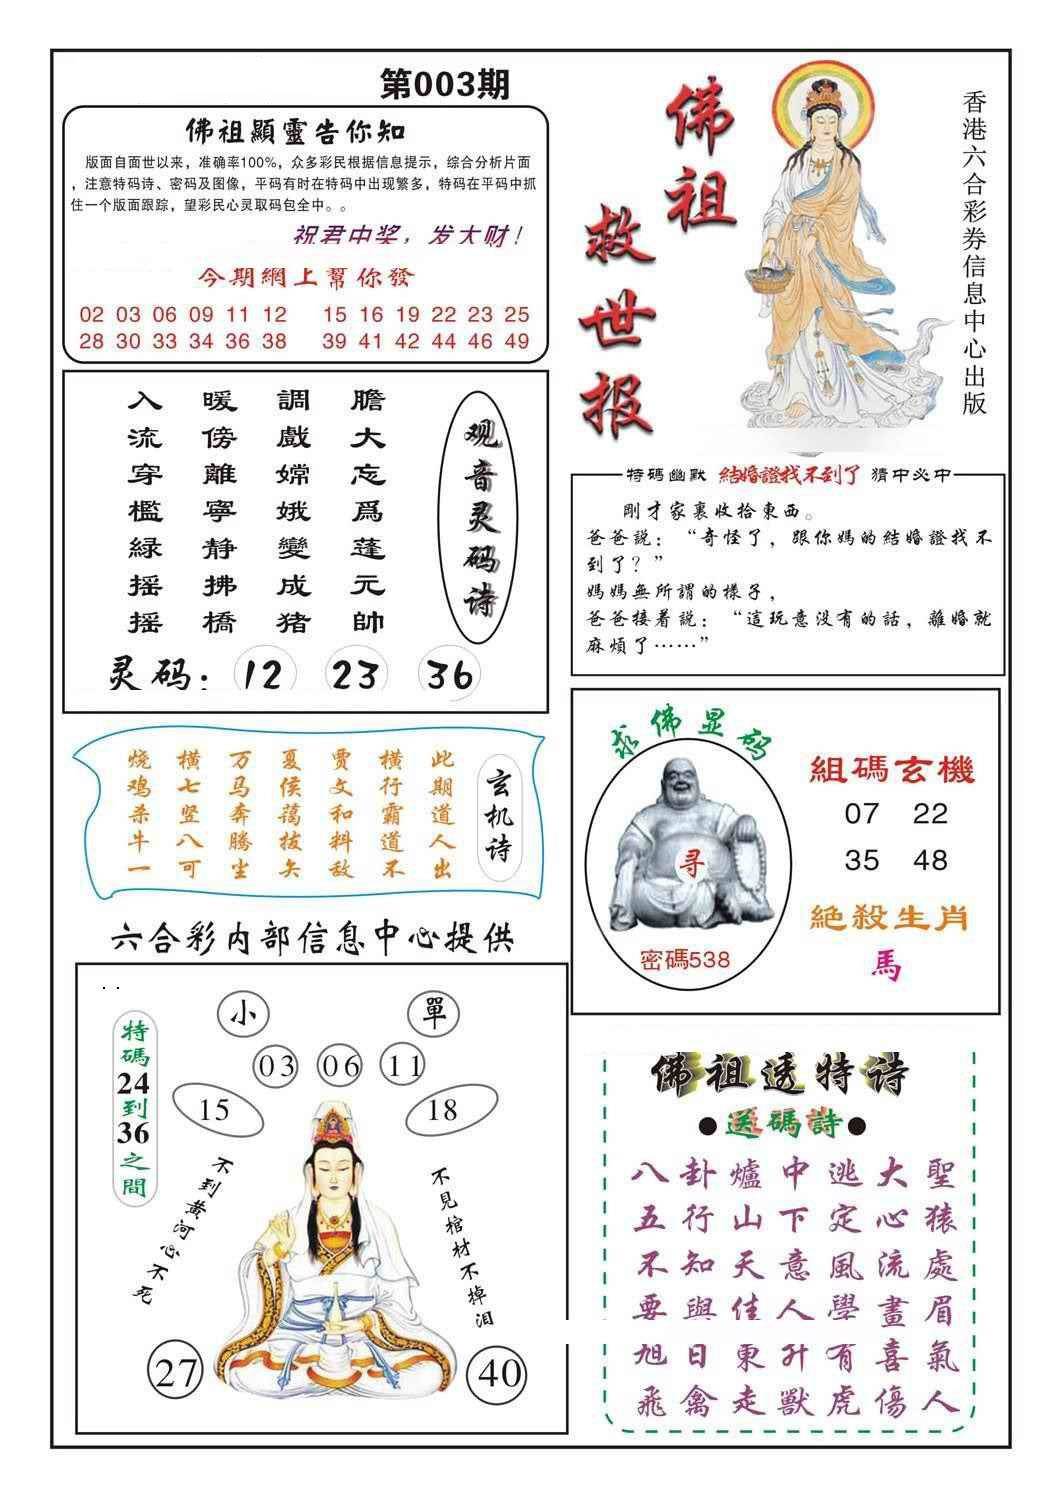 第003期
佛祖顯靈告你知
版面自面世以来，准确率100%，众多彩民根据信息提示，综合分析片面
，注意特码诗、密码及图像，平码有时在特码中出现繁多，特码在平码中抓
住一个版面跟踪，望彩民心灵取码包全中。。
祝君中奖，发大财！
今期網上幫你發
02 03 06 09 11 12 15 16 19 22 23 25
28 30 33 34 36 38 39 41 42 44 46 49
佛祖
救世报
香港六合彩券信息中心出版
观音灵码诗
膽大忘爲蓬元帥
調戲嫦娥變成猪
暖傍離寧静拂橋
入流穿檻緑摇摇
灵码：12 23 36
特码幽默 結婚證找不到了 猜中必中
剛才家裏收拾東西。
爸爸説：“奇怪了，跟你媽的結婚證找不
到了？”
媽媽無所謂的樣子，
爸爸接着説：“這玩意没有的話，離婚就
麻煩了……”
玄机诗
此期道人出
横行霸道不
贾文和料敌
夏侯蔼拔矢
万马奔腾坐
横七竖八可
烧鸡杀牛一
求佛显码
寻
密碼538
組碼玄機
07 22
35 48
絕殺生肖
馬
六合彩内部信息中心提供
特碼24到36之間
小 單
03 06 11
15 18
不到黄河心不死
不見棺材不掉泪
27 40
佛祖透特诗
●送碼詩●
八卦爐中逃大聖
五行山下定心猿
不知天意風流處
要與佳人學畫眉
旭日東升有喜氣
飛禽走獸虎傷人